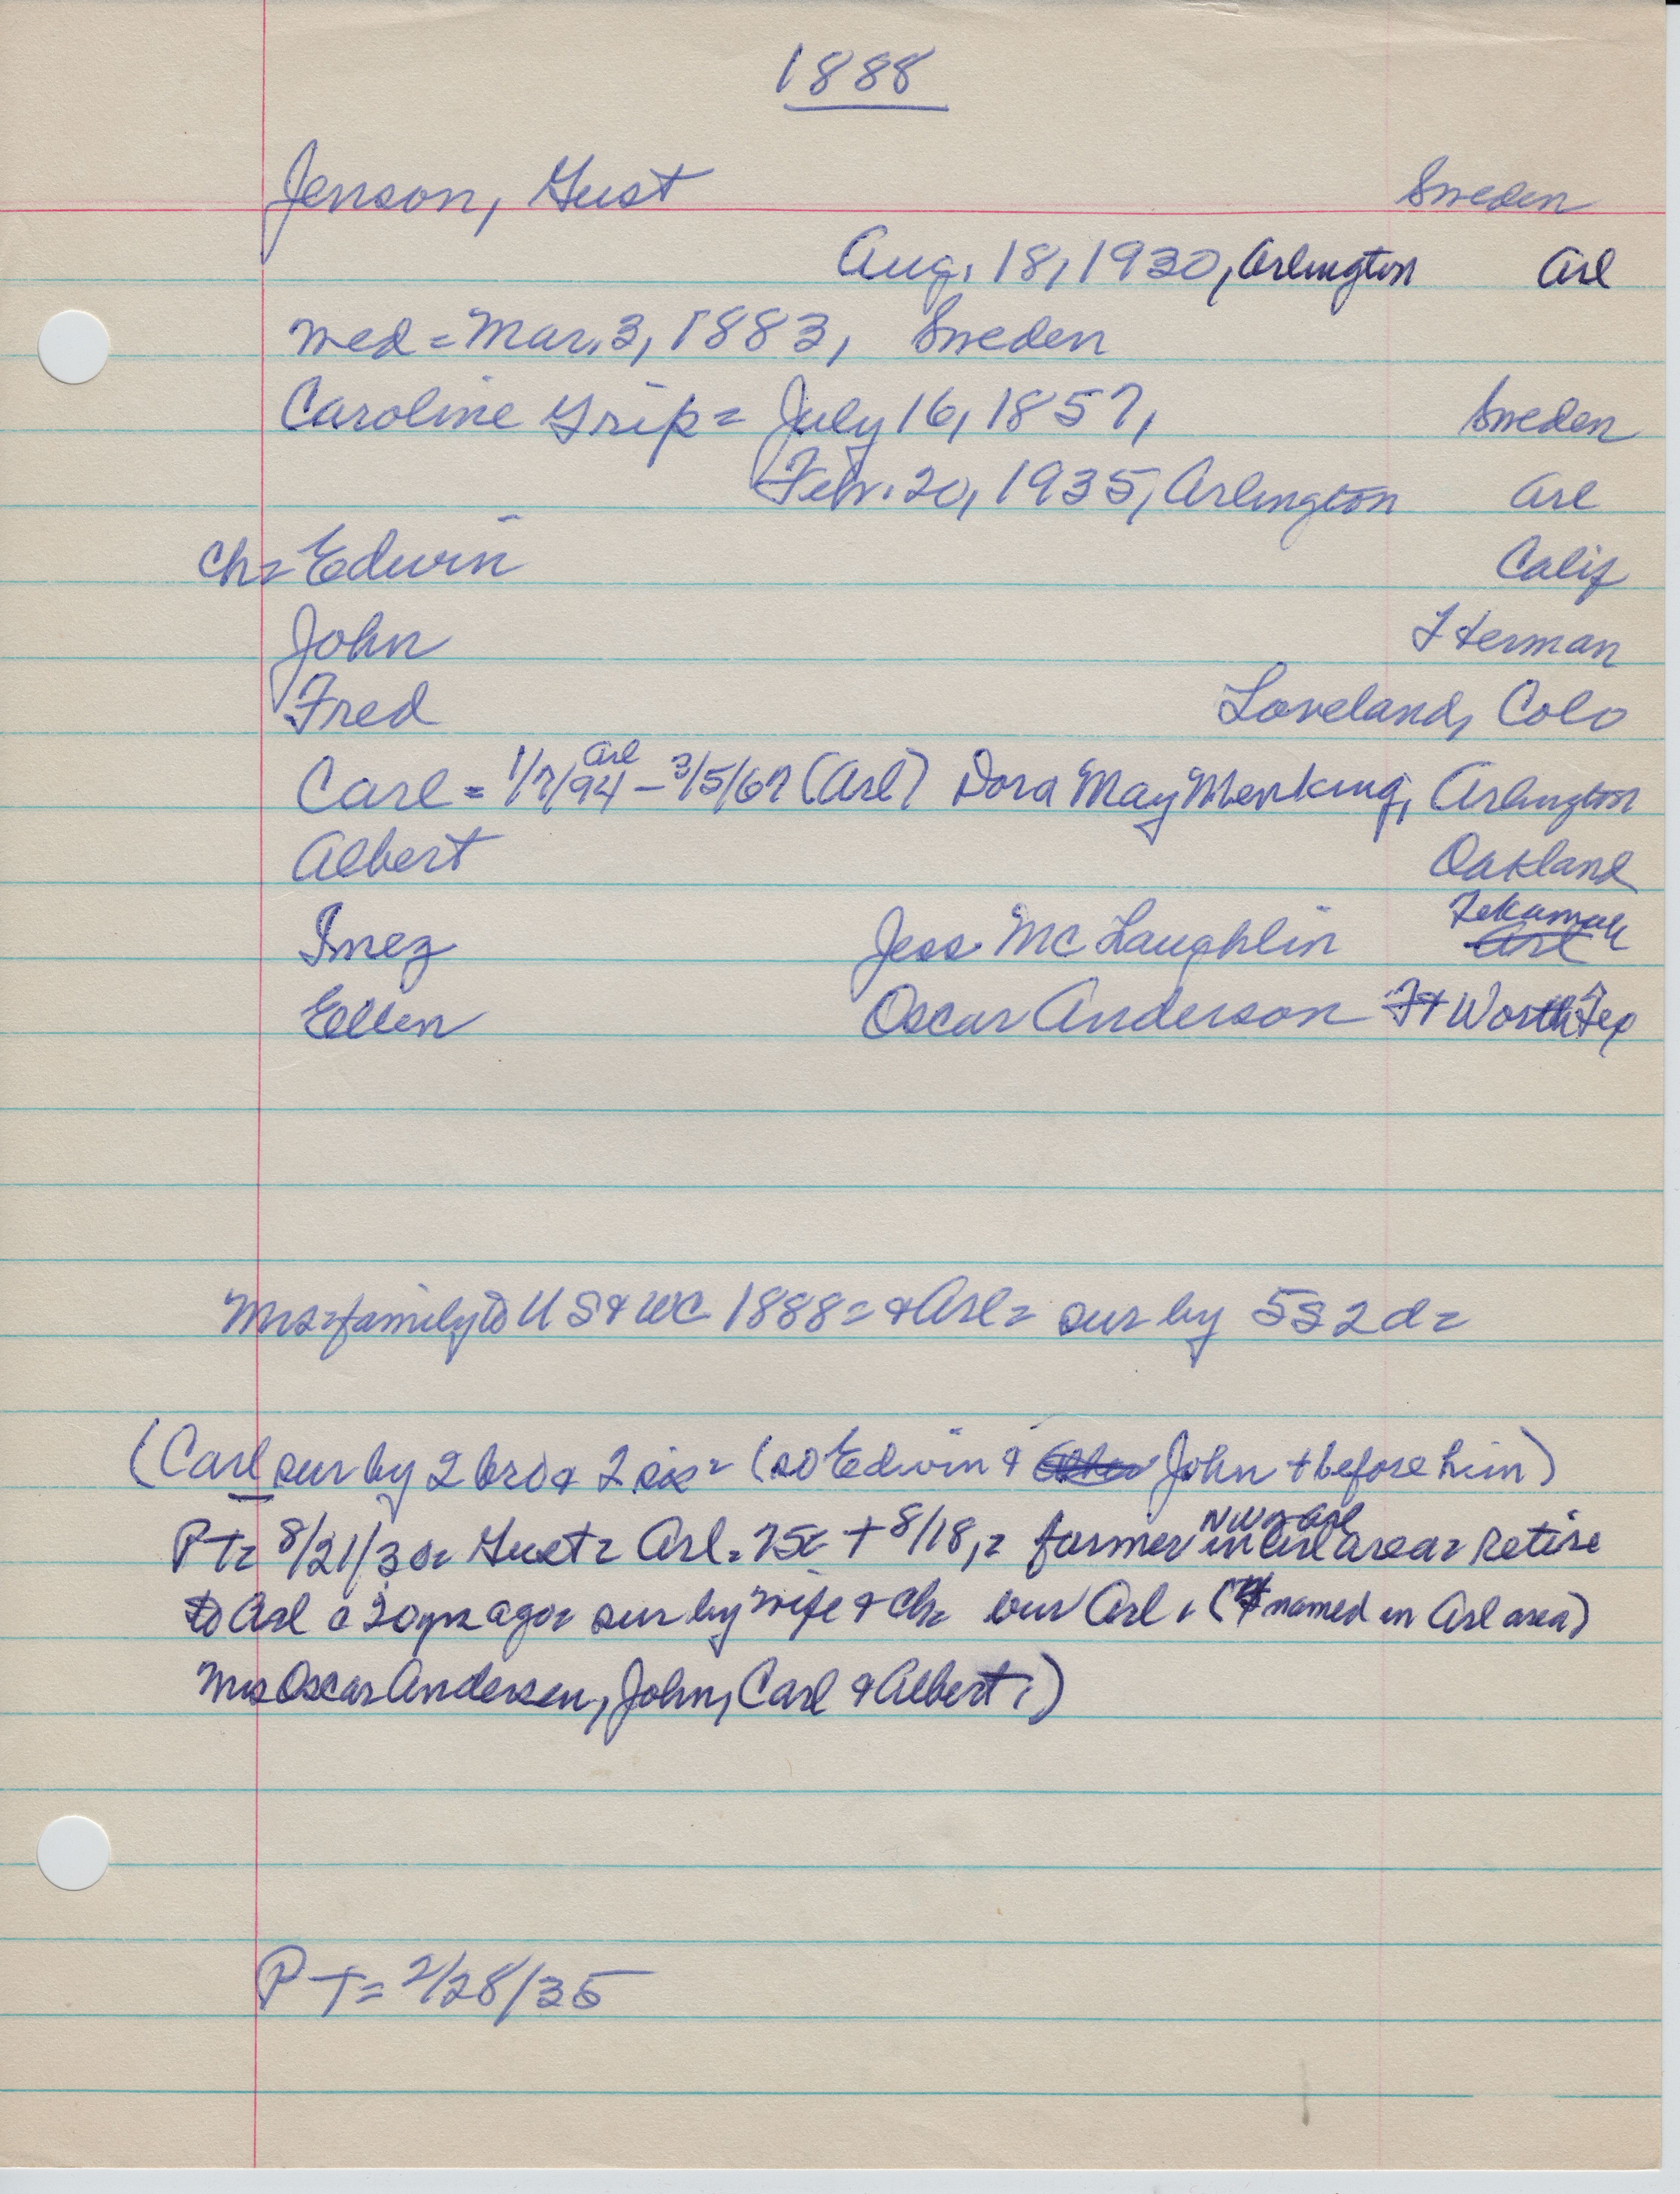 1888
Jenson, Gust Sweden
Aug. 18, 1930, Arlington Arl
wed = Mar. 3, 1883, Sweden
Caroline Grip = July 16, 1857, Sweden
Feb. 20, 1935, Arlington Arl
Ch = Edwin Calif
John Herman
Fred Loveland, Colo
Arl
Carl = 1/7/94 - 3/5/67 (Arl) Dora May Menking, Arlington
Albert Oakland
Tekamah
Inez Jess McLaughlin Arl
Ellen Oscar Anderson Ft Worth Tex
Mrs = family to US & WC 1888 = & Arl = sur by 5 s 2 d =
(Carl sur by 2 bro & 2 sis = (so Edwin & John + before him)
NW = Arl
PT = 8/21/30 = Gust = Arl = 75 + 8/18, = farmer in Arl area = Retire
to Arl c 20 yrs ago = sur by wife & ch = bur Arl, (4 named in Arl area)
Mrs Oscar Andersen, John, Carl & Albert.)
PT = 2/28/35